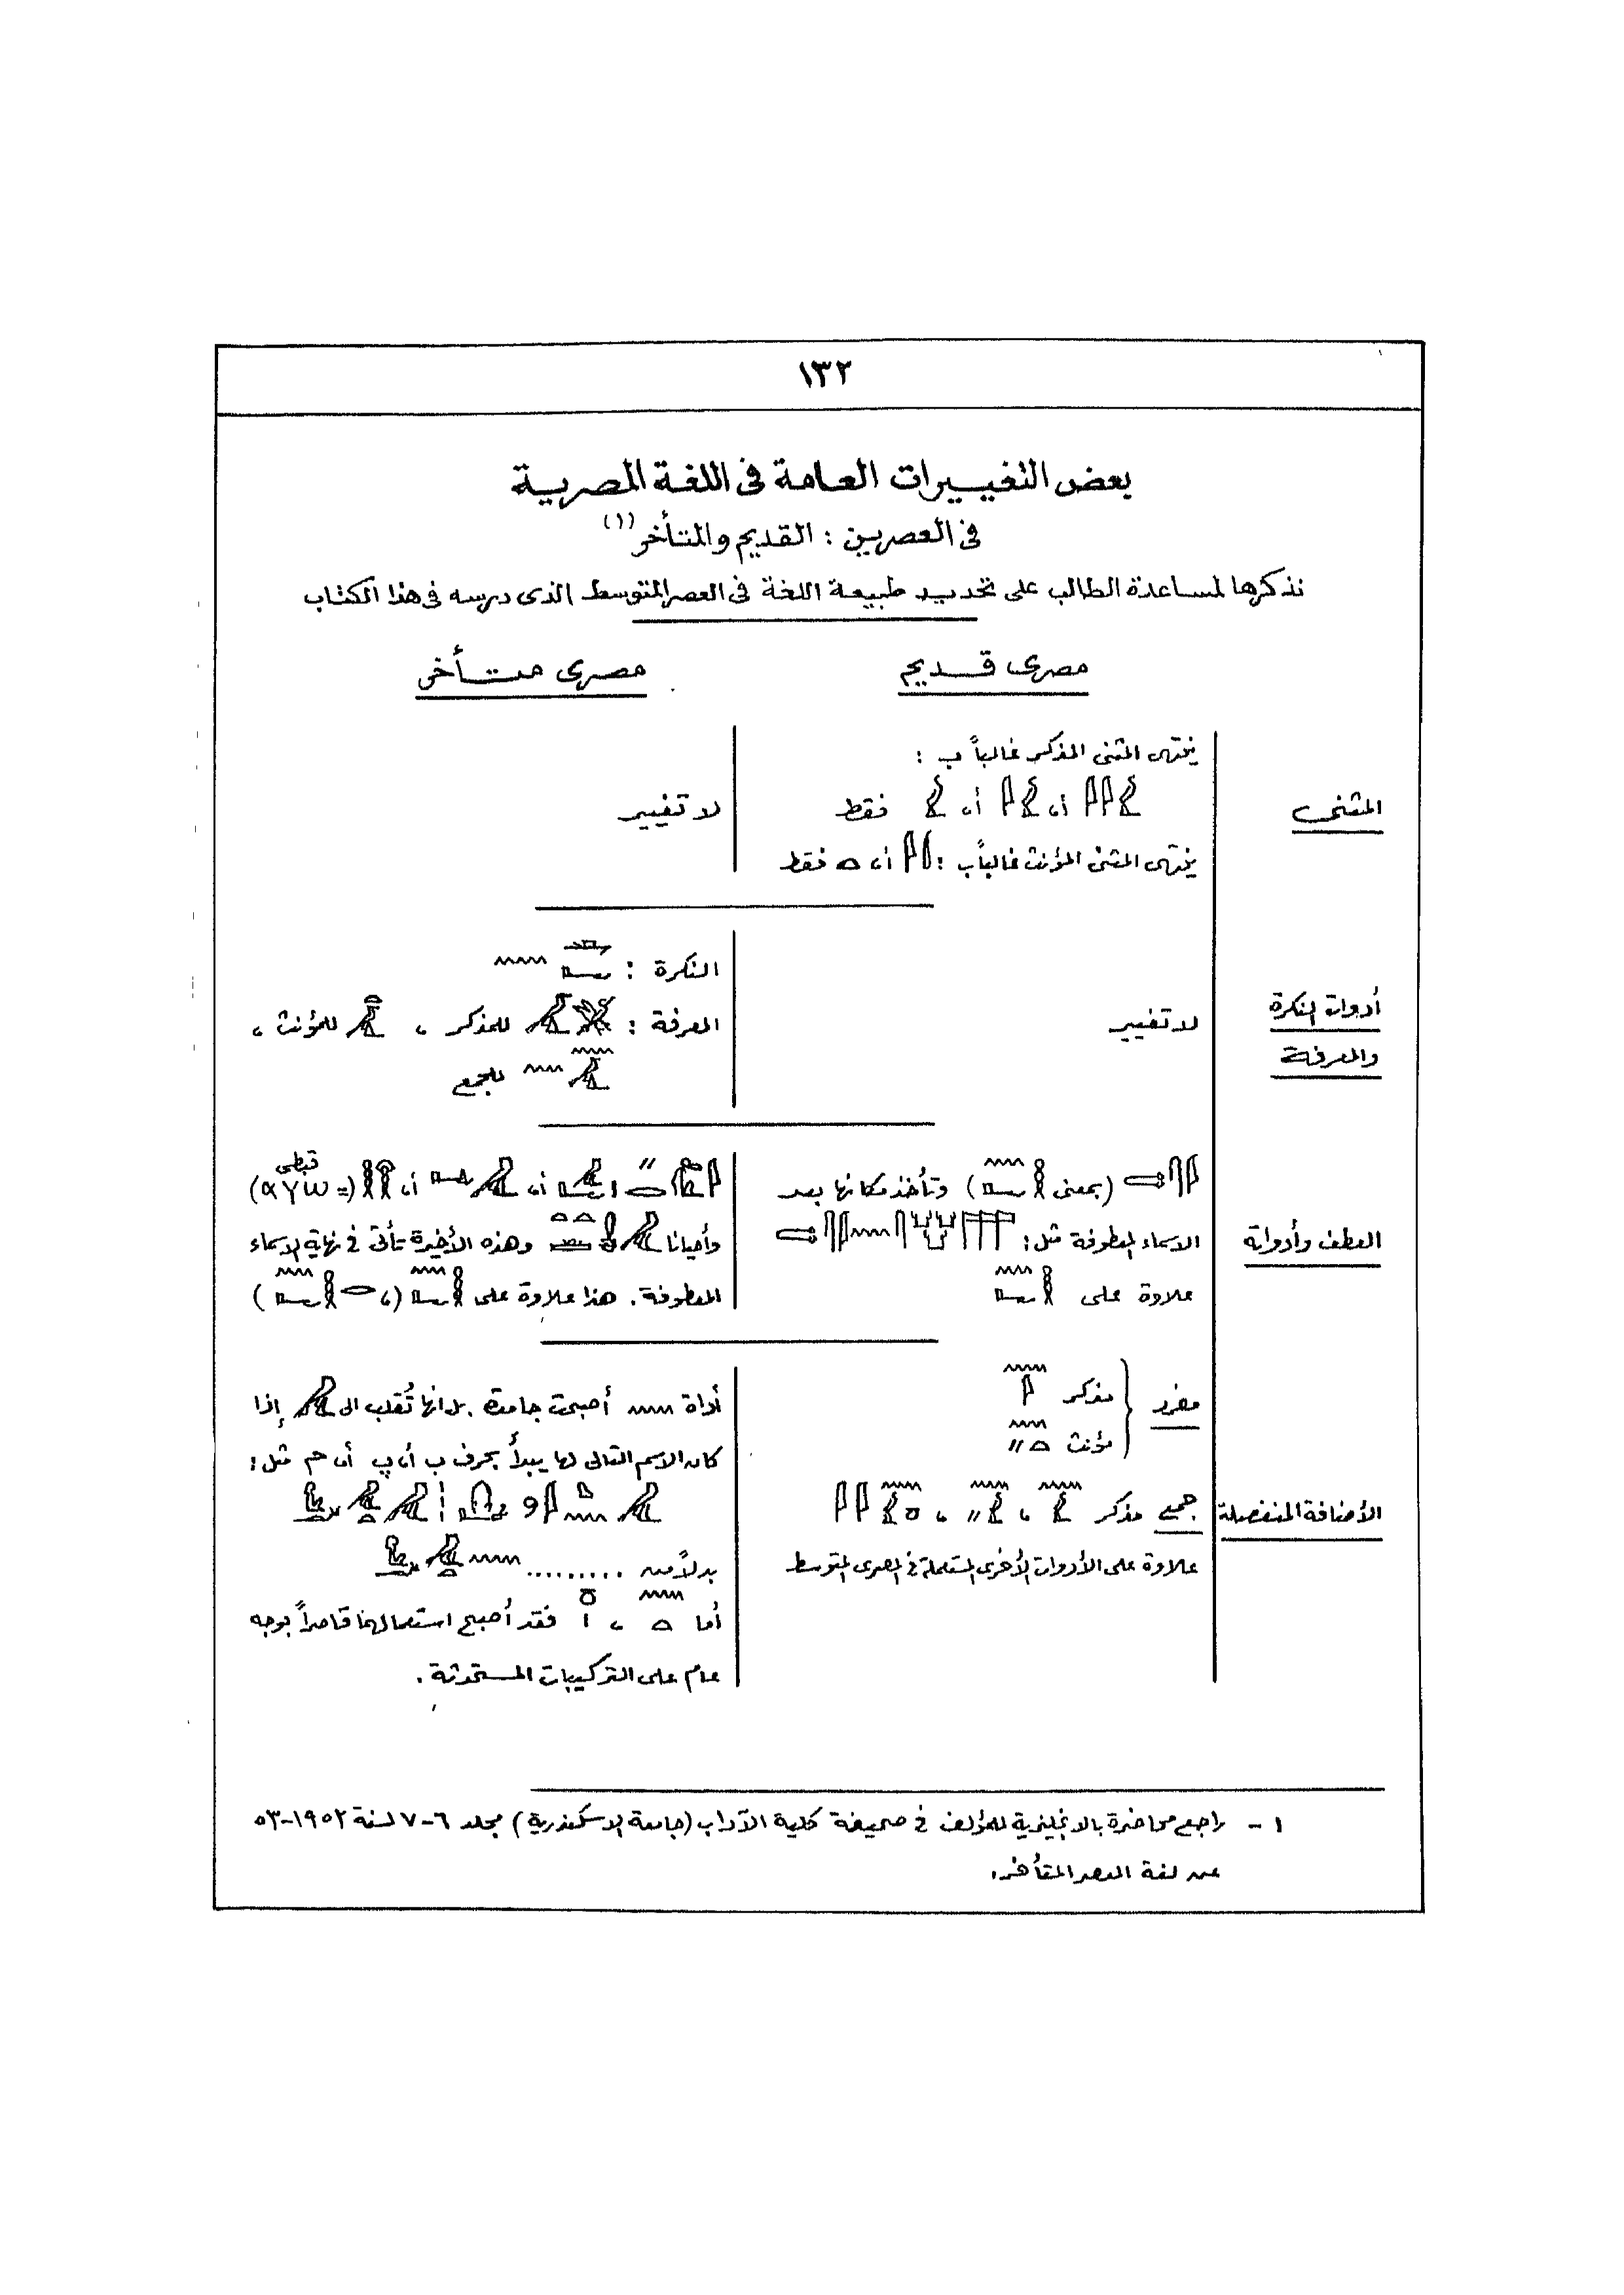 ١٣٢
بعض التغييرات العامة فى اللغة المصرية
فى العصرين : القديم والمتأخر (١)
نذكرها لمساعدة الطالب على تحديد طبيعة اللغة فى العصر المتوسط الذى درسه فى هذا الكتاب
مصرى قديم
مصرى متأخر
المثنى
ينتهى المثنى المذكر غالباً ب :
أو أو فقط
ينتهى المثنى المؤنث غالباً ب : أو فقط
لا تغيير
أدوات النكرة
والمعرفة
لا تغيير
النكرة :
المعرفة : للمذكر ، للمؤنث ،
للجمع
العطف وأدواته
(بمعنى ) وتأخذ مكانها بعد
الاسماء المعطوفة مثل :
علاوة على
أو أو (= ⲁⲩⲱ) قبطى
وأحيانا وهذه الأخيرة تأتى فى نهاية الاسماء
المعطوفة . هذا علاوة على ( ، )
الأضافة المنفصلة
مفرد
مذكر
مؤنث
جمع مذكر ، ،
علاوة على الأدوات الأخرى المستعملة فى المصرى المتوسط
أداة أصبحت جامدة . بل انها تُقلب الى إذا
كان الاسم التالى لها يبدأ بحرف ب أو پ أو م مثل :
بدلاً من .........
أما ، فقد أصبح استعمالهما قاصراً بوجه
عام على التركيبات المستحدثة .
١ - راجع محاضرة بالانجليزية للمؤلف فى صحيفة كلية الآداب (جامعة الاسكندرية) مجلد ٦-٧ لسنة ١٩٥٢-٥٣
عن لغة العصر المتأخر.